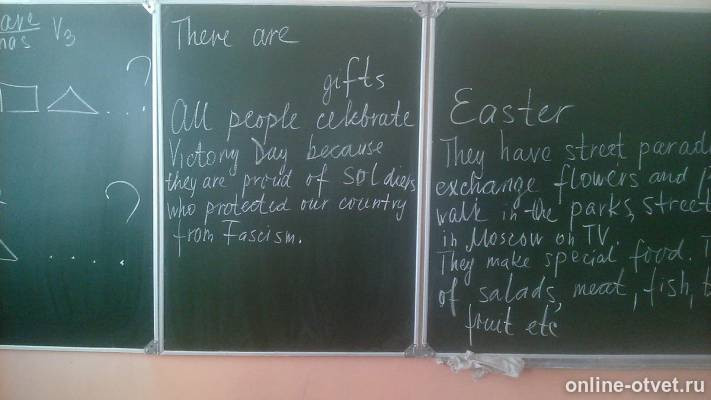 have
has V3
?
. . .
?
. . . .
There are
gifts
All people celebrate
Victory Day because
they are proud of soldiers
who protected our country
from Fascism.
Easter
They have street parad
exchange flowers and
walk in the parks, street
in Moscow on TV.
They make special food. T
of salads, meat, fish,
fruit etc
online-otvet.ru